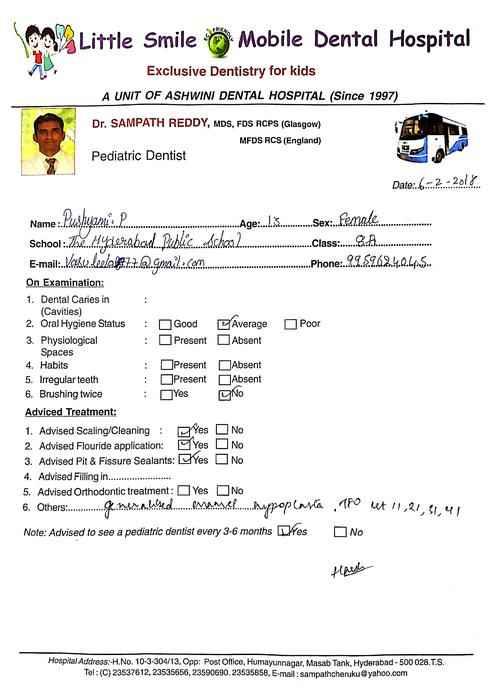 Little Smile Mobile Dental Hospital
Exclusive Dentistry for kids
A UNIT OF ASHWINI DENTAL HOSPITAL (Since 1997)
Dr. SAMPATH REDDY, MDS, FDS RCPS (Glasgow)
MFDS RCS (England)
Pediatric Dentist
Date: 6-2-2018
Name: Pushyami. P Age: 13 Sex: Female
School: The Hyderabad Public School Class: 8A
E-mail: @gmail.com Phone: 9959624045
On Examination:
1. Dental Caries in :
(Cavities)
2. Oral Hygiene Status : Good Average Poor
3. Physiological : Present Absent
Spaces
4. Habits : Present Absent
5. Irregular teeth : Present Absent
6. Brushing twice : Yes No
Adviced Treatment:
1. Advised Scaling/Cleaning : Yes No
2. Advised Flouride application: Yes No
3. Advised Pit & Fissure Sealants: Yes No
4. Advised Filling in
5. Advised Orthodontic treatment : Yes No
6. Others: generalised enamel hypoplasia, 11, 21, 31, 41
Note: Advised to see a pediatric dentist every 3-6 months Yes No
Hospital Address:-H.No. 10-3-304/13, Opp: Post Office, Humayunnagar, Masab Tank, Hyderabad - 500 028.T.S.
Tel : (C) 23537612, 23535656, 23590690. 23535858, E-Mail : sampathcheruku@yahoo.com